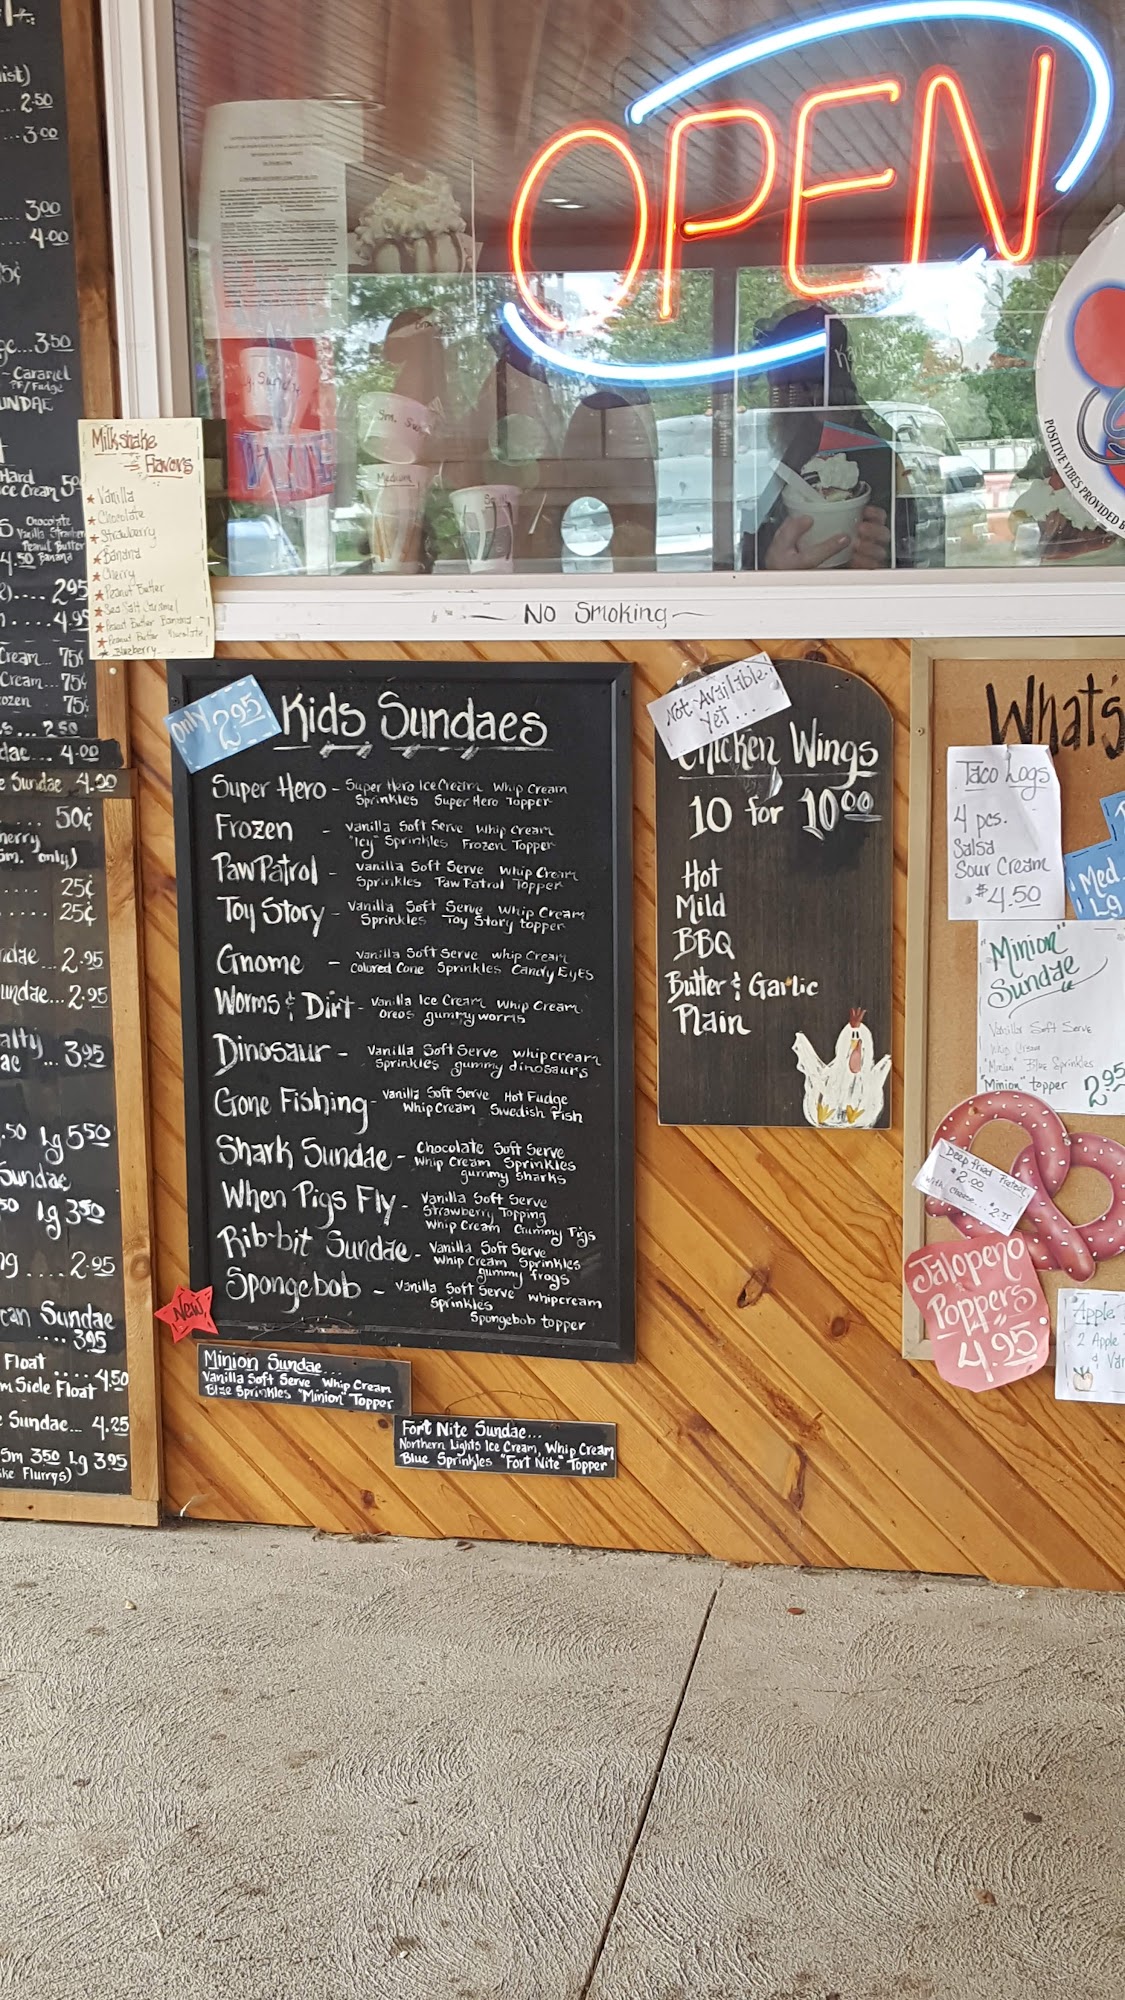 ist)
... 2.50
...3.00
... 3.00
.... 4.00
5¢
...3.50
- Caramel
PB/Fudge
UNDAE
Hard
ce Cream 50¢
Chocolate
Peanut Butter
4.50 Banana
.... 2.95
.... 4.95
Cream... 75¢
Cream... 75¢
ozen 75¢
s... 2.50
dae... 4.00
e Sundae 4.00
.... 50¢
herry
am. only)
..... 25¢
.... 25¢
ndae ... 2.95
undae... 2.95
alty
ae ... 3.95
.50 lg 5.50
Sundae
50 lg 3.50
ng .... 2.95
can Sundae
.... 3.95
Float
.... 4.50
m Side Float
e Sundae... 4.25
Sm 3.50 Lg 3.95
ike Flurrys)
Milkshake
Flavors
Vanilla
Chocolate
Strawberry
Banana
Cherry
Peanut Butter
Sea Salt Caramel
Peanut Butter Banana
Peanut Butter Chocolate
Blueberry
OPEN
Medium
POSITIVE VIBES PROVIDED B
~ No Smoking ~
Only 2.95
Kids Sundaes
Super Hero - Super Hero Ice Cream Whip Cream
Sprinkles Super Hero Topper
Frozen - Vanilla Soft Serve Whip Cream
"Icy" Sprinkles Frozen Topper
Paw Patrol - Vanilla Soft Serve Whip Cream
Sprinkles Paw Patrol Topper
Toy Story - Vanilla Soft Serve Whip Cream
Sprinkles Toy Story topper
Gnome - Vanilla Soft Serve whip Cream
Colured Cone Sprinkles Candy Eyes
Worms & Dirt - Vanilla Ice Cream Whip Cream
Oreos gummy worms
Dinosaur - Vanilla Soft Serve whipcream
Sprinkles gummy dinosaurs
Gone Fishing - Vanilla Soft Serve Hot Fudge
Whip Cream Swedish Fish
Shark Sundae - Chocolate Soft Serve
Whip Cream Sprinkles
gummy sharks
When Pigs Fly - Vanilla Soft Serve
Strawberry Topping
Whip Cream Gummy Pigs
Rib-bit Sundae - Vanilla Soft Serve
Whip Cream Sprinkles
gummy frogs
Spongebob - Vanilla Soft Serve whipcream
Sprinkles
Spongebob topper
New
Minion Sundae...
Vanilla Soft Serve Whip Cream
Blue Sprinkles "Minion" Topper
Fort Nite Sundae...
Northern Lights Ice Cream, Whip Cream
Blue Sprinkles "Fort Nite" Topper
Not Available
Yet ....
Chicken Wings
10 for 10.00
Hot
Mild
BBQ
Butter & Garlic
Plain
What's
Taco Logs
4 pcs.
Salsa
Sour Cream
$4.50
Med.
Lg
"Minion"
Sundae
Vanilla Soft Serve
Whip Cream
"Minion" Blue Sprinkles
"Minion" topper 2.95
Deep fried Pretzel
$2.00
With Cheese... $2.75
Jalopeno
Poppers
4.95
Apple
2 Apple
& Van